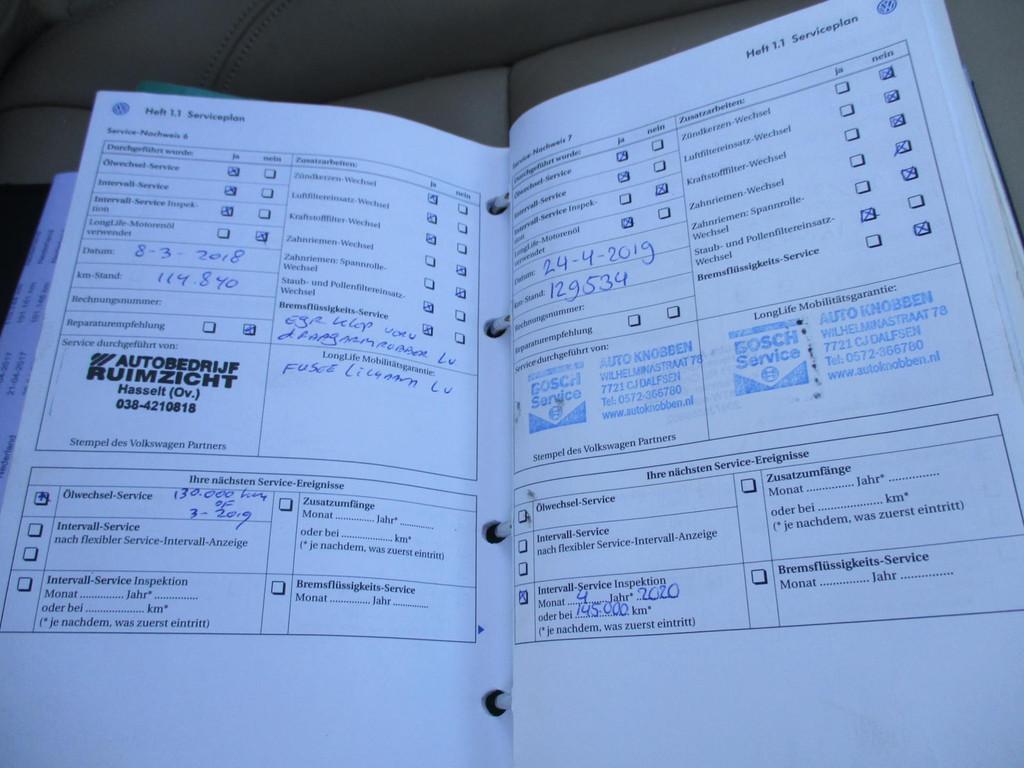 Heft 1.1 Serviceplan
Service-Nachweis 6
Durchgeführt wurde: ja nein
Ölwechsel-Service
Intervall-Service
Intervall-Service Inspek-
tion
LongLife-Motorenöl
verwendet
Datum: 8-3-2018
km-Stand: 114.840
Rechnungsnummer:
Reparaturempfehlung
Service durchgeführt von:
AUTOBEDRIJF
RUIMZICHT
Hasselt (Ov.)
038-4210818
Stempel des Volkswagen Partners
Zusatzarbeiten: ja nein
Zündkerzen-Wechsel
Luftfiltereinsatz-Wechsel
Kraftstofffilter-Wechsel
Zahnriemen-Wechsel
Zahnriemen: Spannrolle-
Wechsel
Staub- und Pollenfiltereinsatz-
Wechsel
Bremsflüssigkeits-Service
EGR klep
draagarmrubber LV
LongLife Mobilitätsgarantie:
FUSEE LV
Ihre nächsten Service-Ereignisse
Ölwechsel-Service 130.000 km
of
3-2019
Intervall-Service
nach flexibler Service-Intervall-Anzeige
Intervall-Service Inspektion
Monat .............. Jahr* ..............
oder bei .................... km*
(* je nachdem, was zuerst eintritt)
Zusatzumfänge
Monat .............. Jahr* ..............
oder bei .................... km*
(* je nachdem, was zuerst eintritt)
Bremsflüssigkeits-Service
Monat .............. Jahr ..............
Heft 1.1 Serviceplan
Service-Nachweis 7
Durchgeführt wurde: ja nein
Ölwechsel-Service
Intervall-Service
Intervall-Service Inspek-
tion
LongLife-Motorenöl
verwendet
Datum: 24-4-2019
km-Stand: 129534
Rechnungsnummer:
Reparaturempfehlung
Service durchgeführt von:
BOSCH
Service
AUTO KNOBBEN
WILHELMINASTRAAT 78
7721 CJ DALFSEN
Tel: 0572-366780
www.autoknobben.nl
Stempel des Volkswagen Partners
Zusatzarbeiten: ja nein
Zündkerzen-Wechsel
Luftfiltereinsatz-Wechsel
Kraftstofffilter-Wechsel
Zahnriemen-Wechsel
Zahnriemen: Spannrolle-
Wechsel
Staub- und Pollenfiltereinsatz-
Wechsel
Bremsflüssigkeits-Service
LongLife Mobilitätsgarantie:
BOSCH
Service
AUTO KNOBBEN
WILHELMINASTRAAT 78
7721 CJ DALFSEN
Tel: 0572-366780
www.autoknobben.nl
Ihre nächsten Service-Ereignisse
Ölwechsel-Service
Intervall-Service
nach flexibler Service-Intervall-Anzeige
Intervall-Service Inspektion
Monat 4 Jahr* 2020
oder bei 145.000 km*
(* je nachdem, was zuerst eintritt)
Zusatzumfänge
Monat .............. Jahr* ..............
oder bei .................... km*
(* je nachdem, was zuerst eintritt)
Bremsflüssigkeits-Service
Monat .............. Jahr ..............